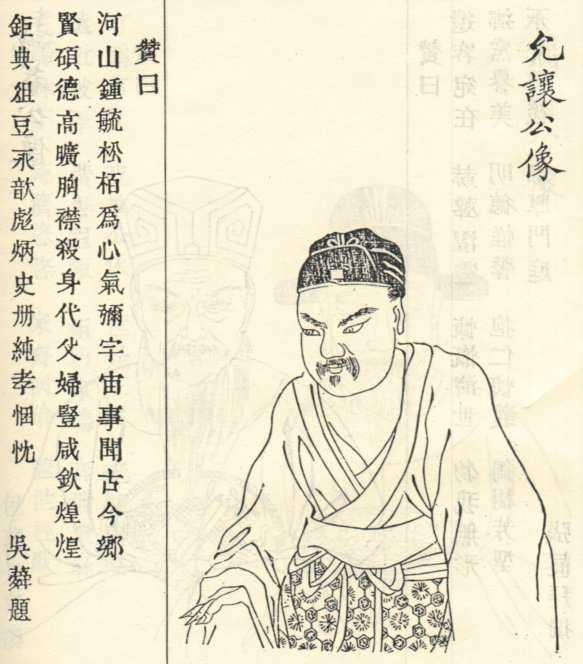 允讓公像
贊曰
河山鍾毓松栢爲心氣彌宇宙事聞古今鄉
賢碩德高曠胸襟殺身代父婦豎咸欽煌煌
鉅典俎豆永歆彪炳史册純孝悃忱
吳蕣題